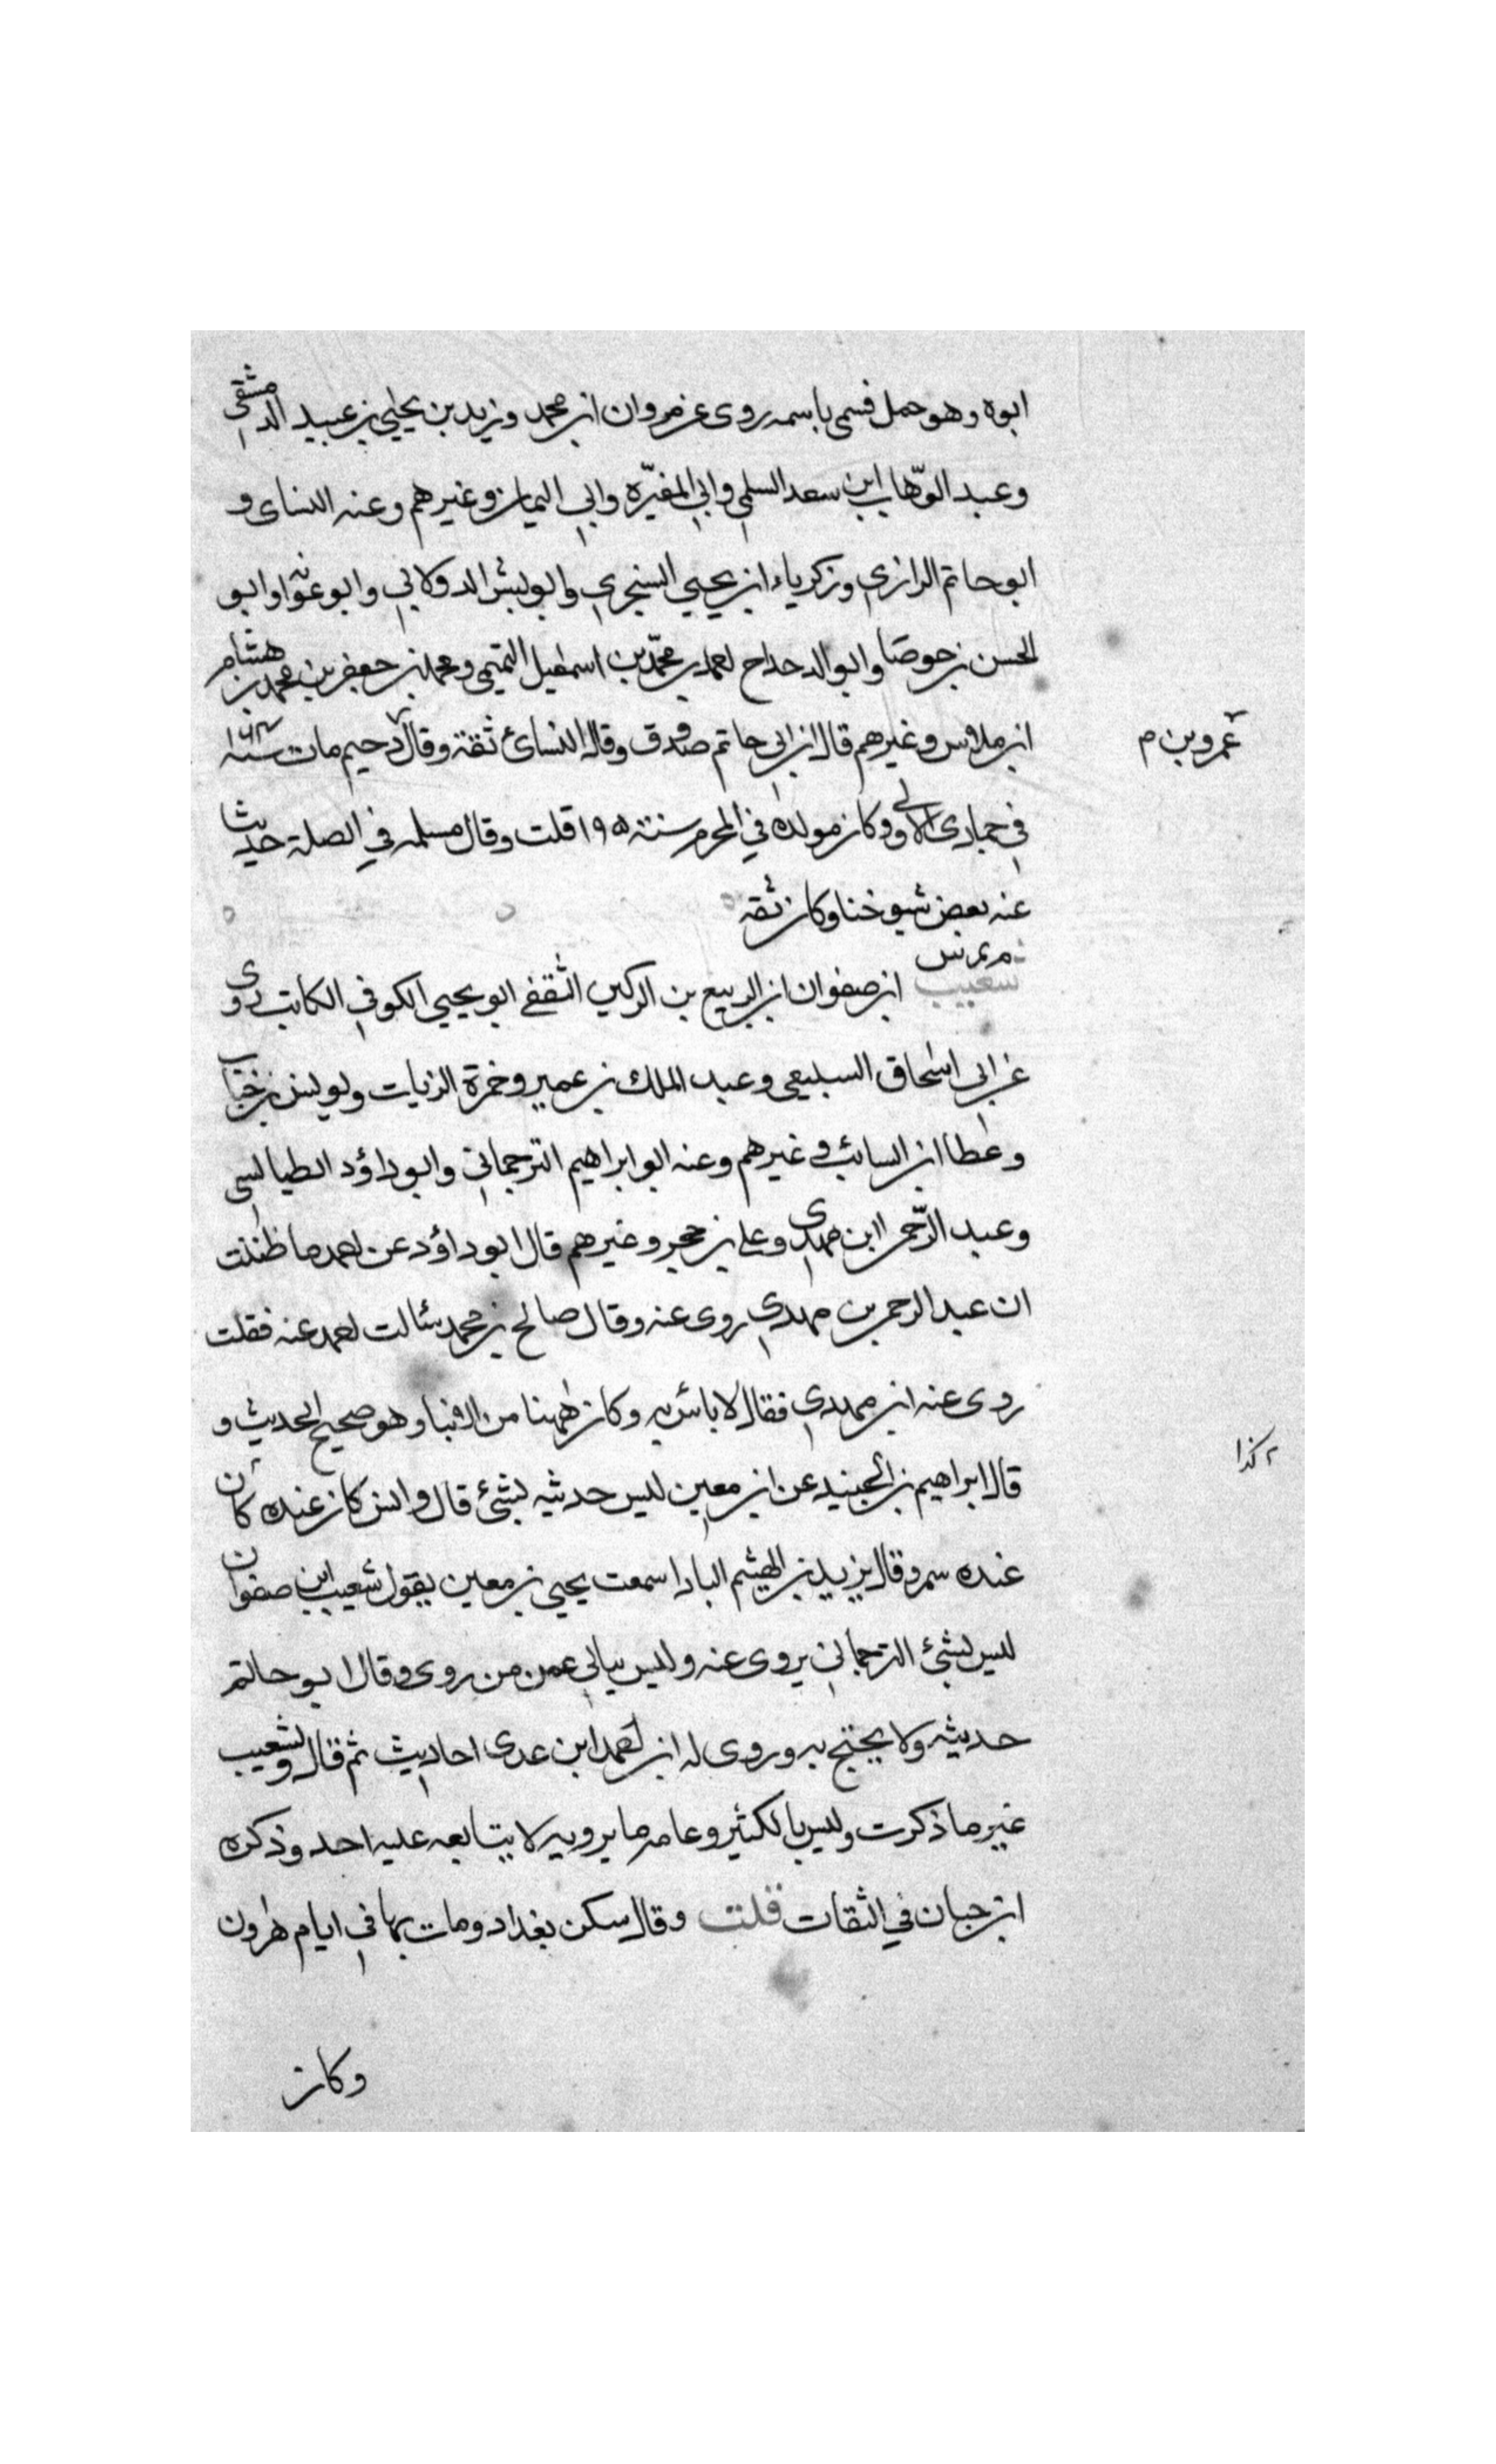 ابوه وهو حمل فسمى باسمه روى عن مروان ابن محمد وزيد بن يحيى بن عبيد الدمشقي
وعبد الوهّاب ابن سعد السلمي وابي المغيّره وابي اليمان وغيرهم وعنه النساى و
ابو حاتم الرازي وزكرياء ابن يحيى السنجري وابو بشر الدولابي وابو عوانه وابو
الحسن بن حوصا وابو الدحداح احمد بن محمّد بن اسمعيل التميمي ومحمد بن جعفر بن محمد بن هشام
ابن ملاس وغيرهم قال ابن ابي حاتم صدوق وقال النسائ ثقة وقال دحيم مات سنة
عمرو بن م
في جمادى الاولى وكان مولده في المحرم سنة ١٩٥ قلت وقال مسلمه في الصلة حدثنا
عنه بعض شيوخنا وكان ثقه
م مد س
شعيب ابن صفوان ابن الربيع بن الركين الثقفي ابو يحيى الكوفي الكاتب روى
عن ابي اسحاق السبيعي وعبد الملك بن عمير وحمزة الزيات ويونس بن خباب
وعطا ابن السائب وغيرهم وعنه ابو ابراهيم الترجماني وابو داؤد الطيالسي
وعبد الرّحمن ابن مهدي وعلي بن حجر وغيرهم قال ابو داؤد عن احمد ما ظننت
ان عبد الرحمن بن مهدي روى عنه وقال صالح بن محمد سئالت احمد عنه فقلت
روى عنه ابن مهدي فقال لا بائس به وكان ههنا من الانبا وهو صحيح الحديث و
قال ابراهيم بن الجنيد عن ابن معين ليس حديثه بشئ قال وايش كان عنده كان
٢ كذا
عنده سمر وقال يزيد بن الهيثم البادا سمعت يحيى بن معين يقول شعيب ابن صفوان
ليس بشئ الترجماني يروى عنه وليس يبالي عمن من روى وقال ابو حاتم
حديثه ولا يحتج به وروى له ابن احمد ابن عدى احاديث ثم قال ولشعيب
غير ما ذكرت وليس بالكثير وعامه ما يرويه لا يتابعه عليه احد وذكره
ابن حبان في الثقات قلت وقال سكن بغداد ومات بها في ايام هرون
وكان